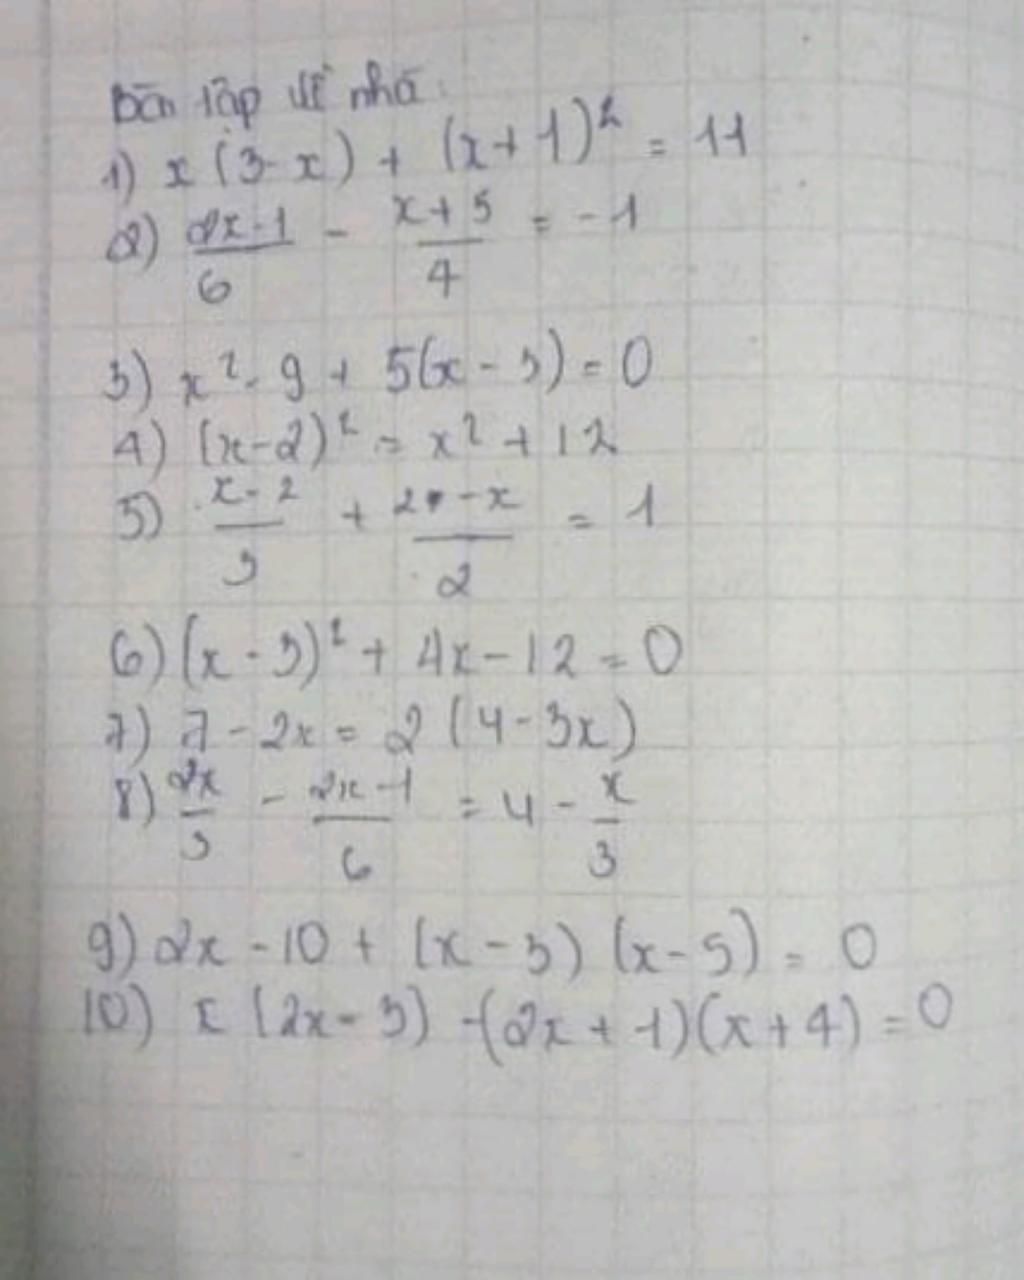 Bài tập về nhà:
1) x(3-x) + (x+1)² = 11
2) (2x-1)/6 - (x+5)/4 = -1
3) x² - 9 + 5(x-3) = 0
4) (x-2)² = x² + 12
5) (x-2)/3 + (2-x)/2 = 1
6) (x-3)² + 4x - 12 = 0
7) 7 - 2x = 2(4-3x)
8) 2x/3 - (2x-1)/6 = 4 - x/3
9) 2x - 10 + (x-3)(x-5) = 0
10) x(2x-3) - (2x+1)(x+4) = 0